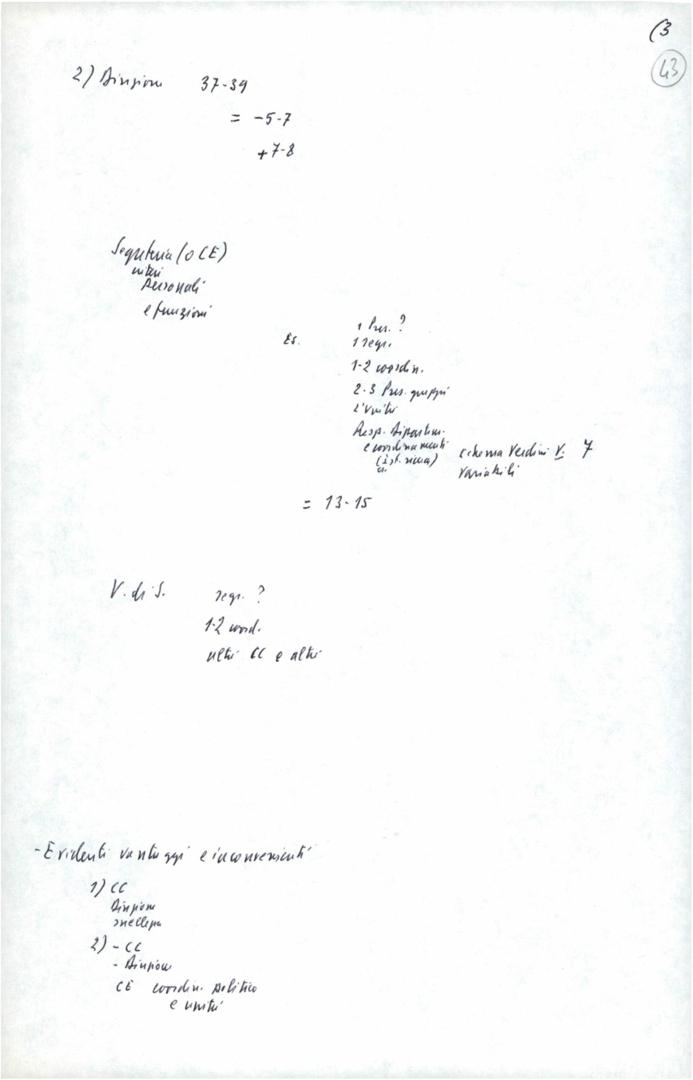 (3
43
2) Direzione 37-39
= -5-7
+7-8
Segreteria (o CE)
criteri
personali
e funzioni
Es. 1 Pres. ?
1 segr.
1-2 coordin.
2-3 Pres. gruppi
L'Unità
Resp. Dipartim.
e coordinamenti
schema Verdini V. 7
variabili
= 13-15
V. di S. segr. ?
1-2 coord.
altri CC e altri
- Evidenti vantaggi e inconvenienti
1) CC
Direzione
snellezza
2) - CC
- Direzione
CE coordin. politico
e unità